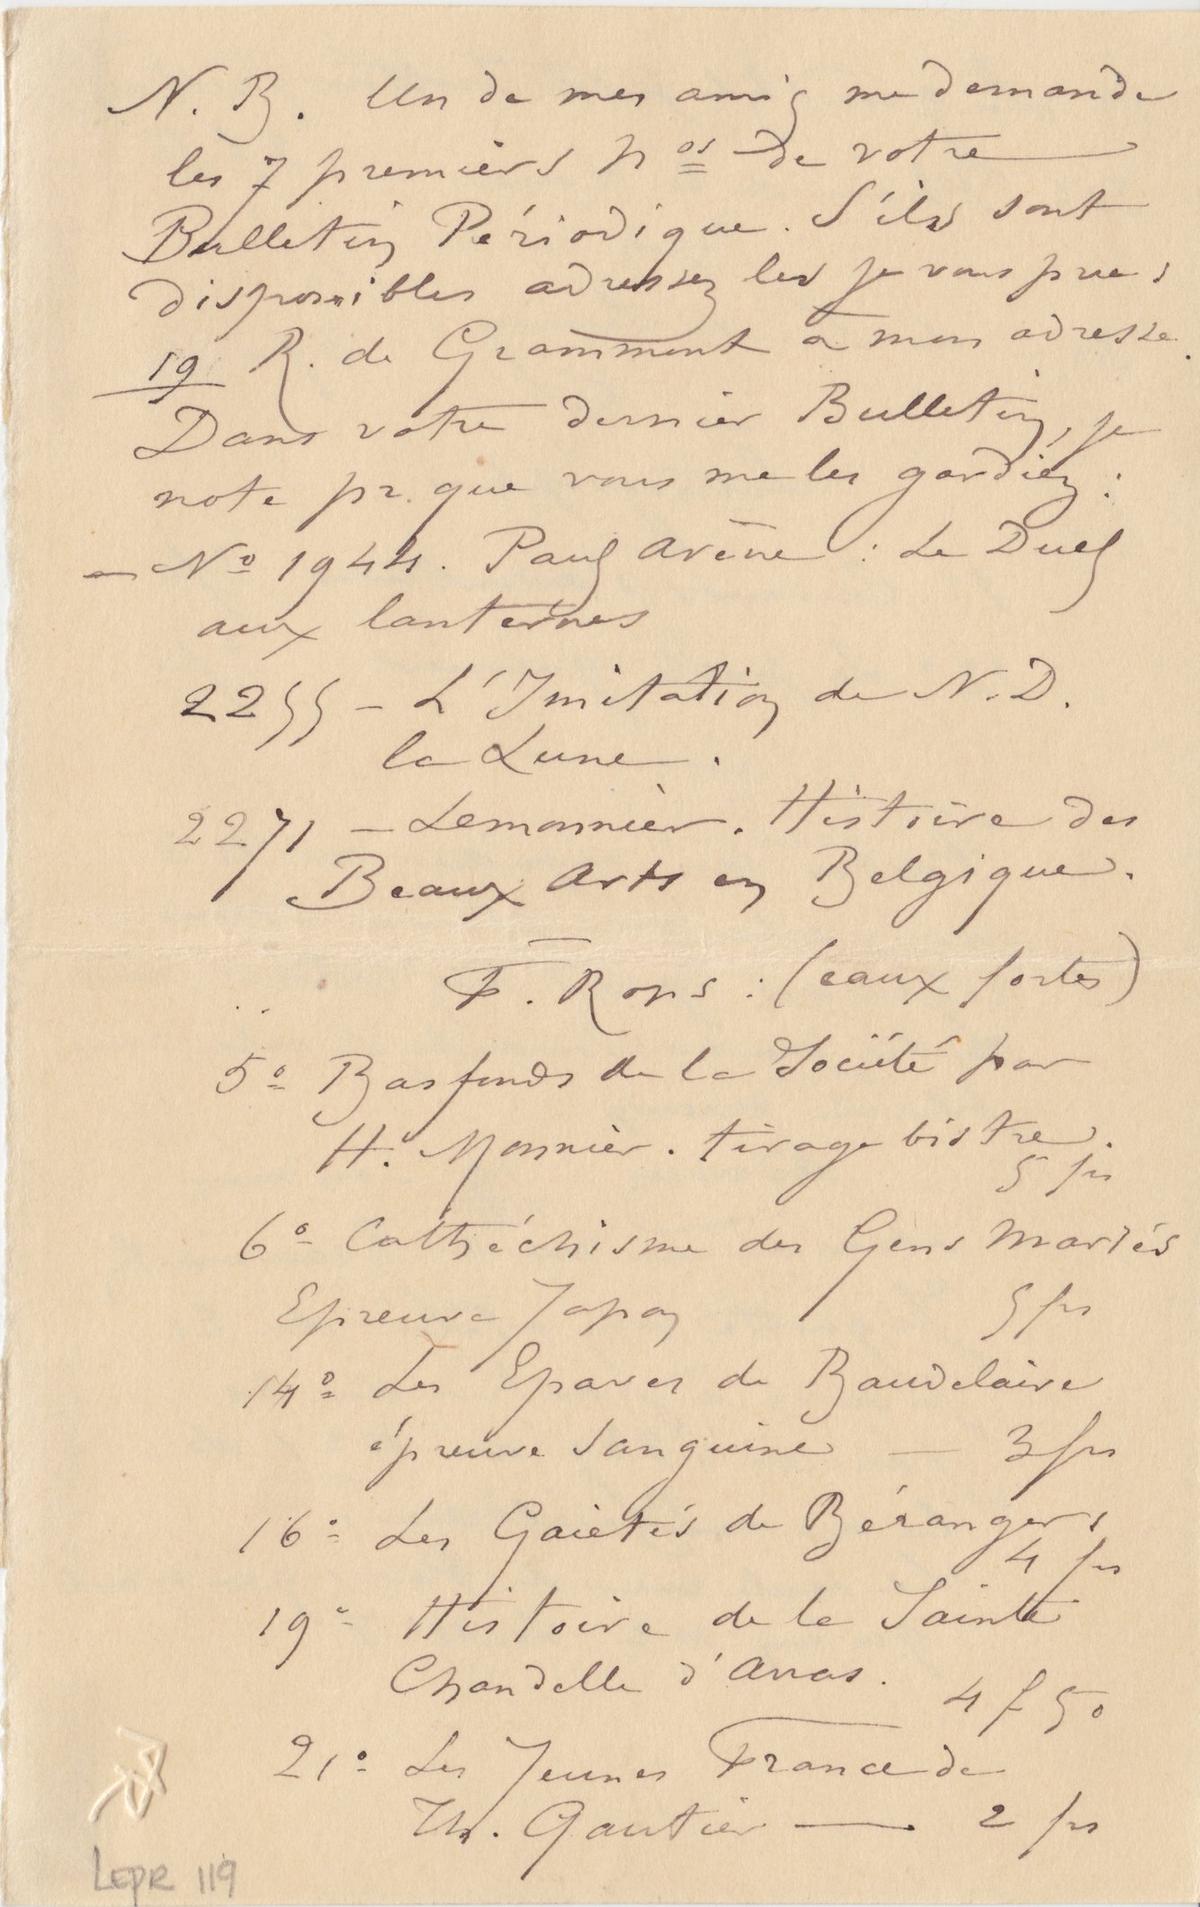 N. B. Un de mes amis me demande
les 7 premiers nos de votre
Bulletin Périodique. S'ils sont
disponibles adressez les je vous prie,
19 R. de Grammont à mon adresse.
Dans votre dernier Bulletin, je
note pr. que vous me les gardiez :
— No 1944. Paul Arène : Le Duel
aux lanternes
2255 – L'Imitation de N. D.
la Lune.
2271 – Lemonnier. Histoire des
Beaux Arts en Belgique.
F. Rops : (eaux fortes)
5o Bas fonds de la Société par
H. Monnier. tirage bistre.
5 frs
6o Cathéchisme des Gens Mariés
Epreuve Japon 5 frs
14o Les Epaves de Baudelaire
épreuve sanguine — 3 frs
16o Les Gaietés de Béranger,
4 frs
19o Histoire de la Sainte
Chandelle d'Arras.
4 f 50
21o Les Jeunes France de
Th. Gautier — 2 frs
LEPR 119